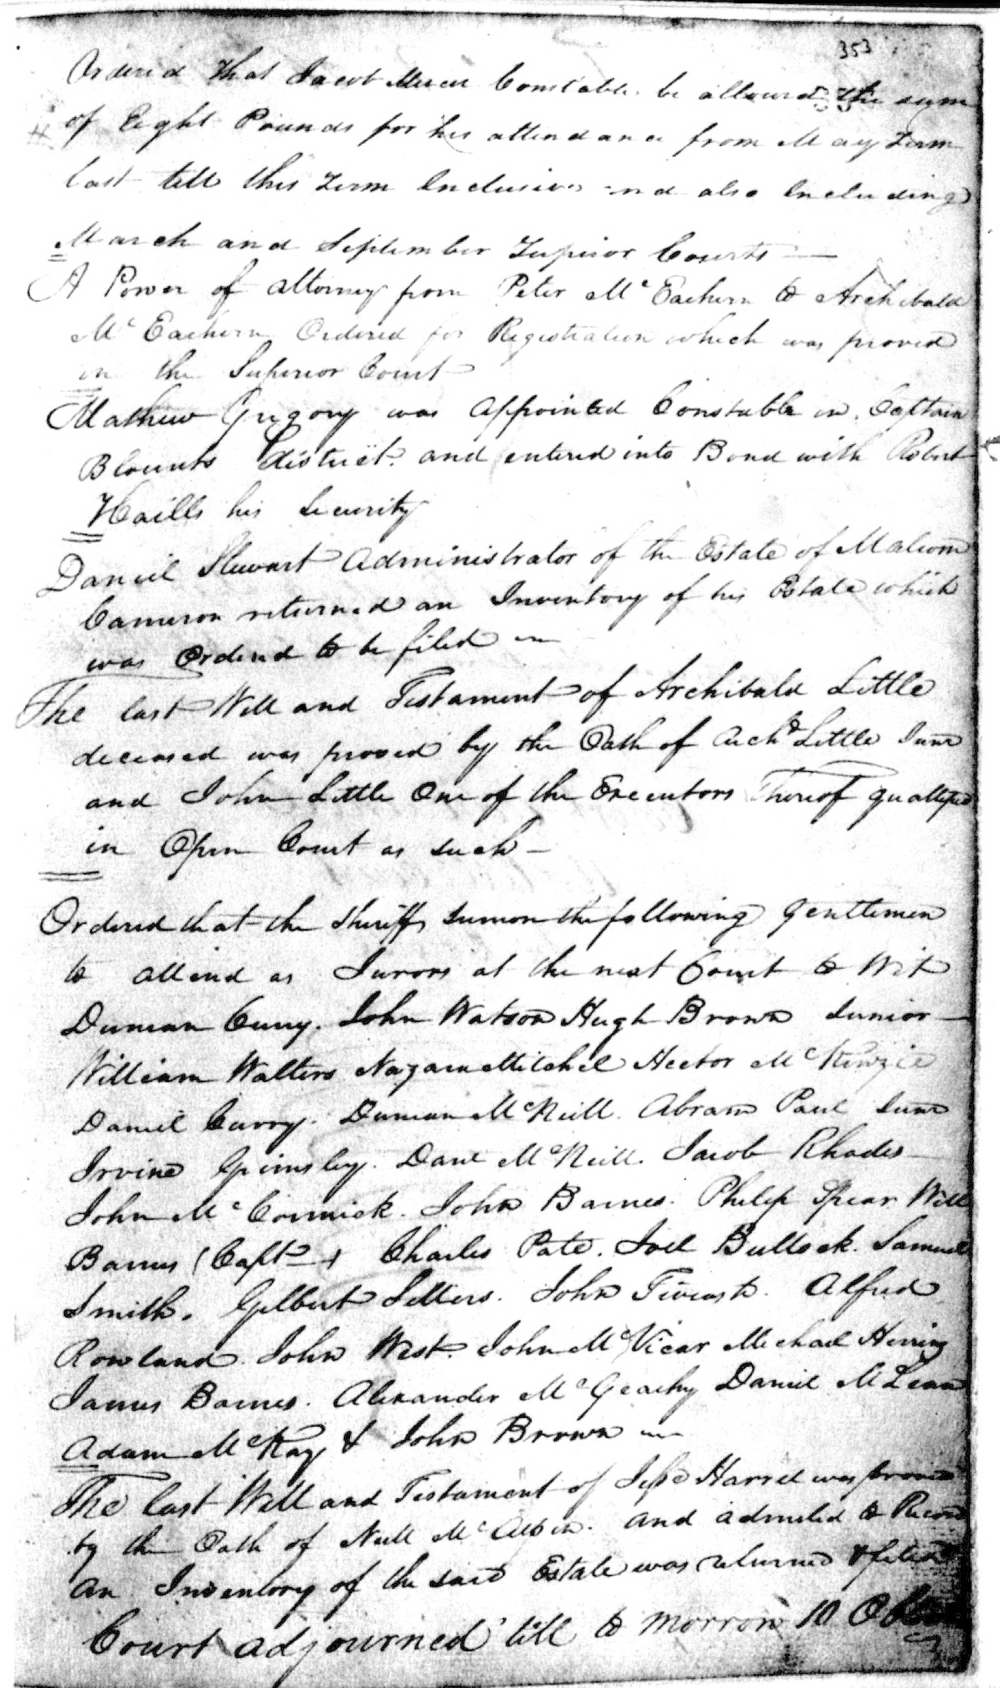 353
Ordered that Jacob Mercer Constable be allowed the sum
of Eight Pounds for his attendance from May Term
last till this Term Inclusive and also Including
March and September Superior Courts
A Power of attorney from Peter McEachern to Archibald
McEachern Ordered for Registration which was proved
in the Superior Court
Mathew Gregory was appointed Constable in Captain
Blounts district and entered into Bond with Robert
Haills his Security
Daniel Stewart Administrator of the Estate of Malcom
Cameron returned an Inventory of his Estate which
was Ordered to be filed
The last Will and Testament of Archibald Little
deceased was proved by the Oath of Archd Little Junr
and John Little One of the Executors Thereof qualifyed
in Open Court as such
Ordered that the Sheriff sumon the following gentlemen
to attend as Jurors at the next Court to Wit
Duncan Curry. John Watson Hugh Brown Junior
William Walters Mitchel Hector McKenzie
Daniel Curry. Duncan McNeill. Abram Paul Junr
Irvine Grimsley. Danl McNeill. Jacob Rhodes
John McCormick. John Barnes. Philip Spear Will
Barnes (Captn) Charles Pate. Joel Bullock. Samuel
Smith. Gilbert Sellers. John. Alfred
Rowland. John West. John McVicar Michael Herring
James Barnes. Alexander McGeachy Daniel McLean
Adam McKay & John Brown
The last Will and Testament of Jesse Harrel was proved
by the Oath of Neill McAlpin. and admited to Record
an Inventory of the said Estate was returned & filed
Court adjourned till to morrow 10 OClock